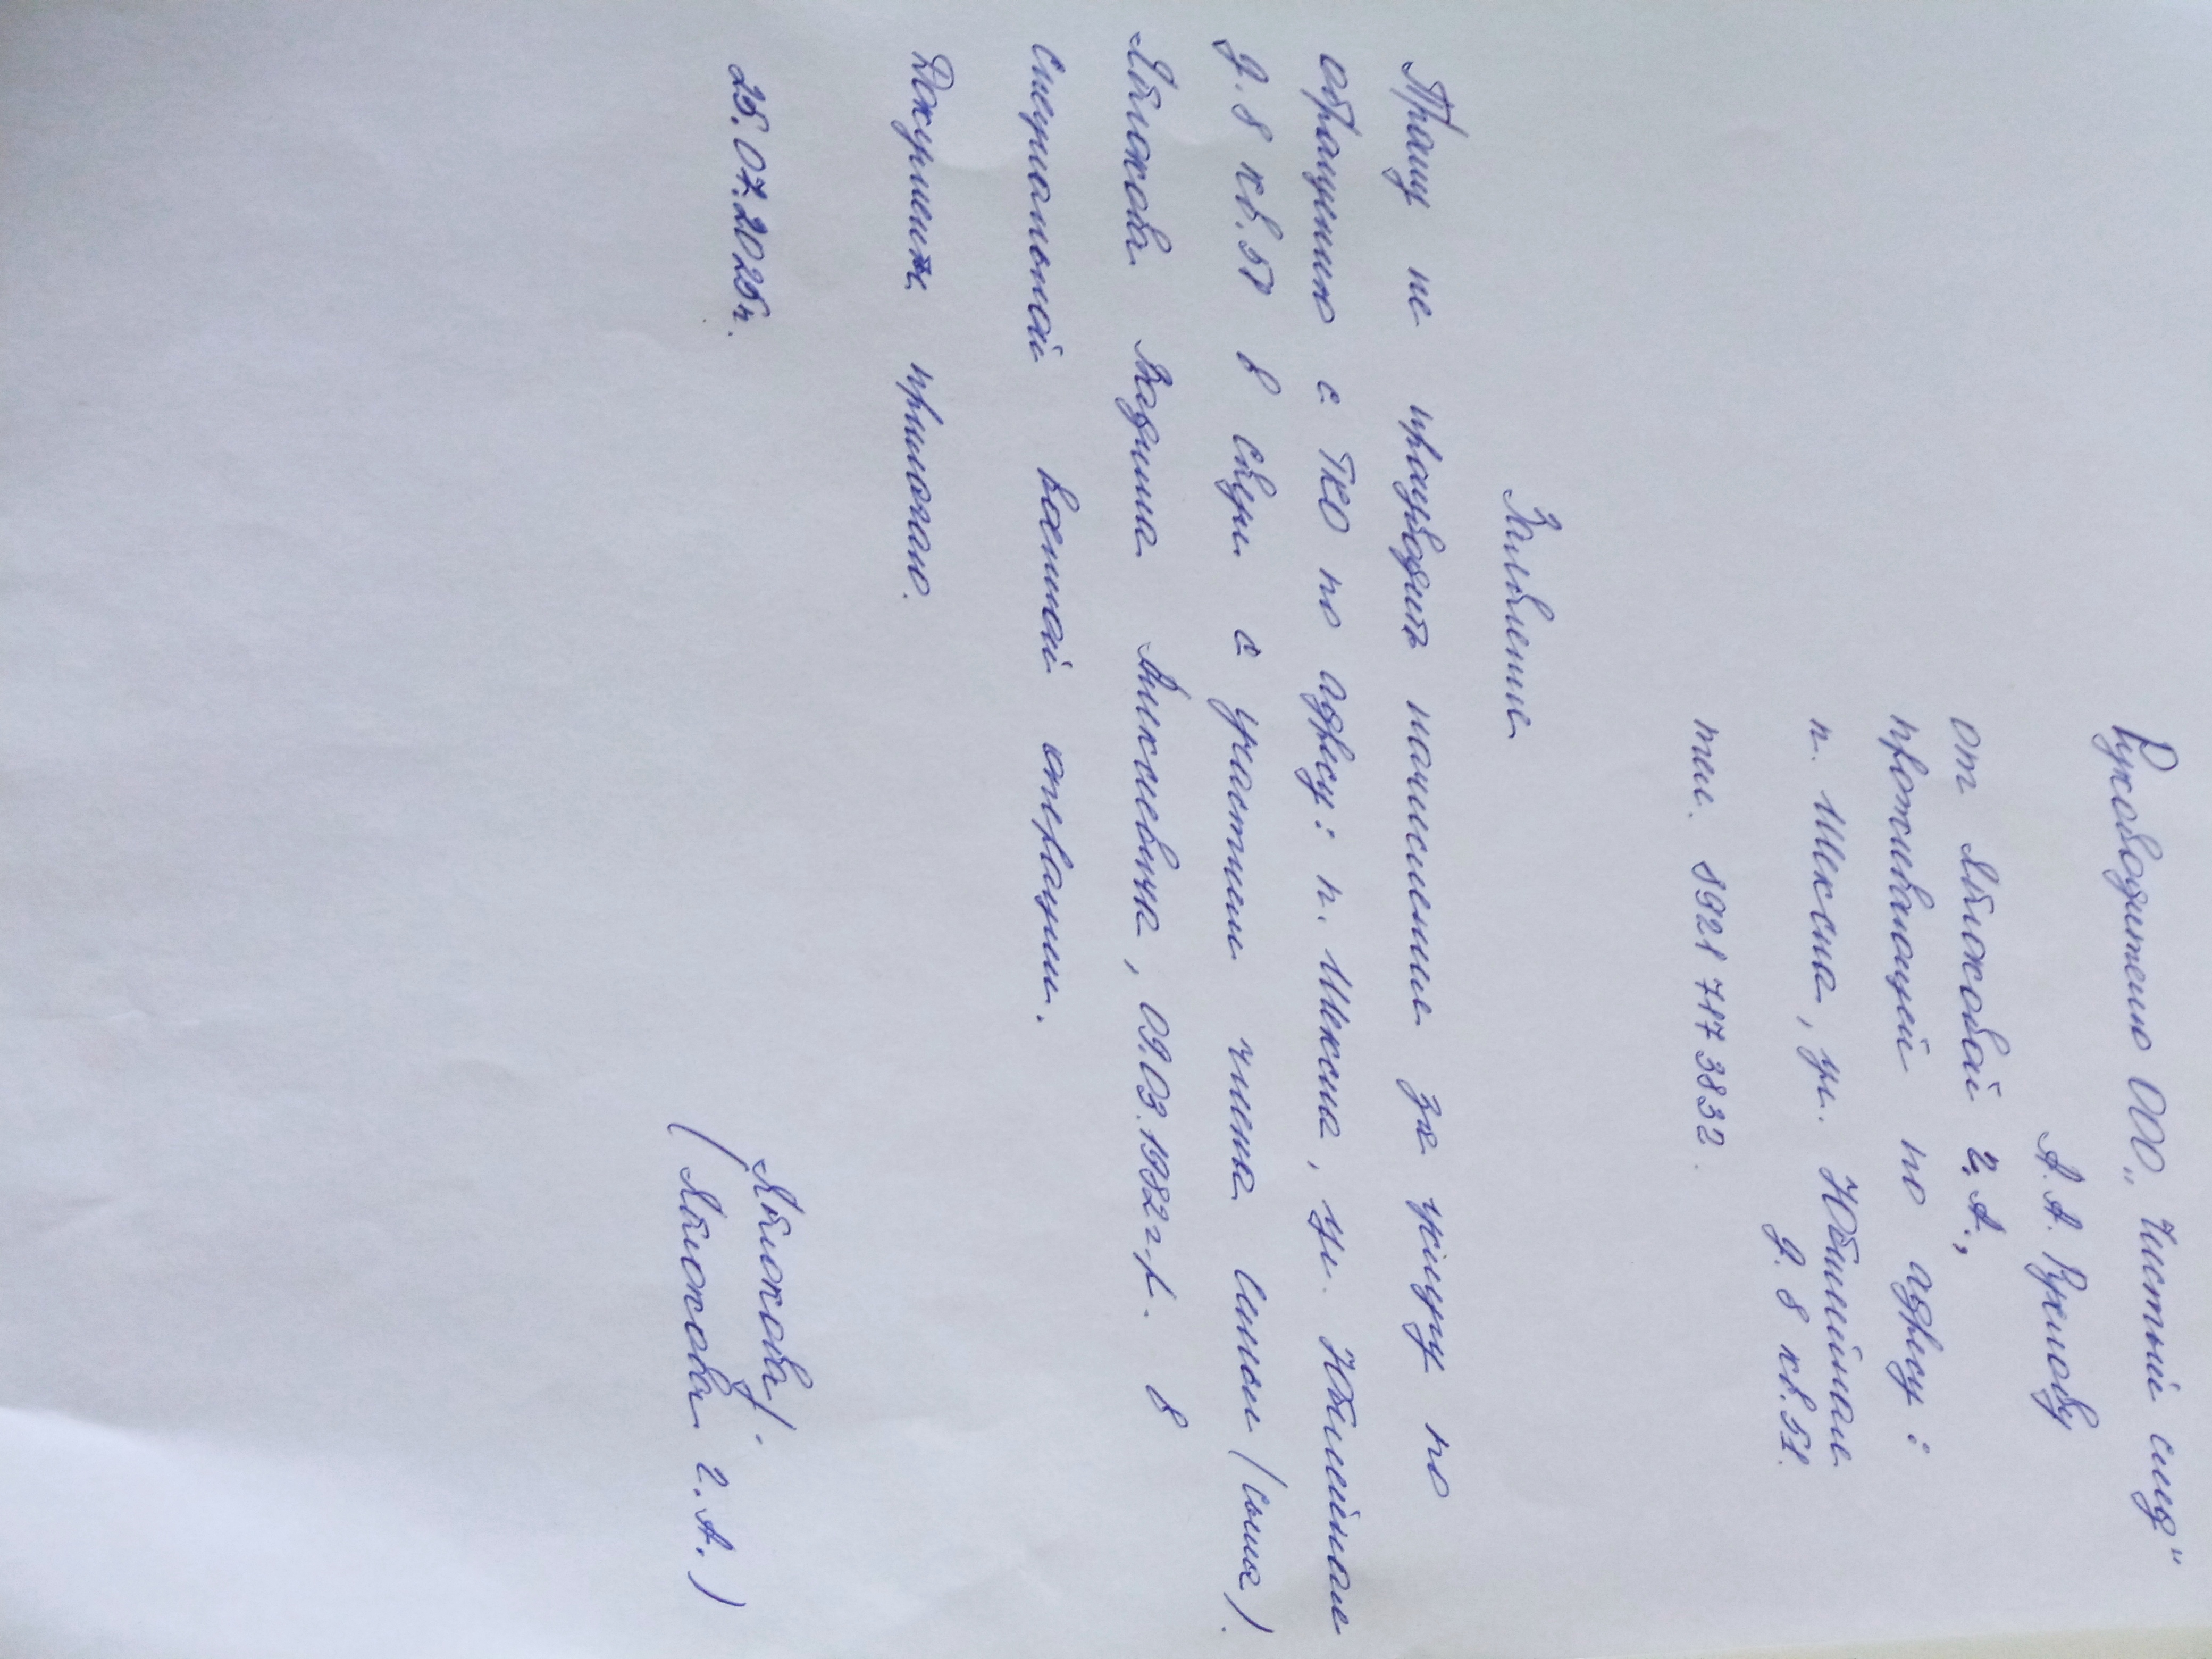 Руководителю ООО „Чистый след"
А.А. Рухлову
от Яблоковой Г.А.,
проживающей по адресу:
п. Шексна, ул. Юбилейная
д. 8 кв. 57.
тел. 8921 717 3832.
Заявление
Прошу не проводить начисление за услугу по
обращению с ТКО по адресу: п. Шексна, ул. Юбилейная
д. 8 кв. 57 в связи с участием члена семьи (сына)
Яблокова Вадима Алексеевича, 09.03.1982 г.р. в
специальной военной операции.
Документы прилагаю.
25.07.2025г. Яблокова/.
(Яблокова Г.А.)